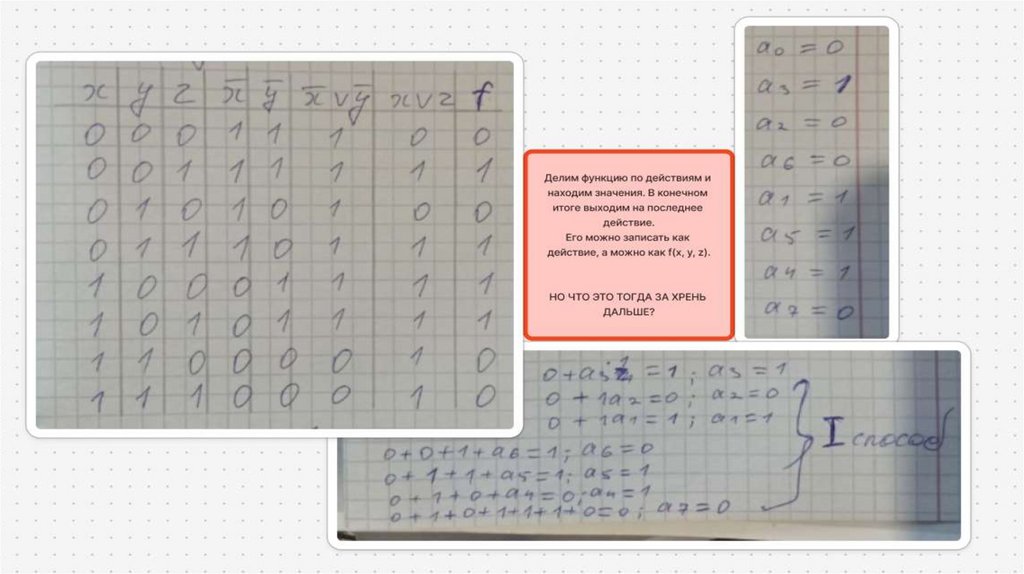 x y z x̄ ȳ x̄ ∨ ȳ x ∨ z f
0 0 0 1 1 1 0 0
0 0 1 1 1 1 1 1
0 1 0 1 0 1 0 0
0 1 1 1 0 1 1 1
1 0 0 0 1 1 1 1
1 0 1 0 1 1 1 1
1 1 0 0 0 0 1 0
1 1 1 0 0 0 1 0
Делим функцию по действиям и
находим значения. В конечном
итоге выходим на последнее
действие.
Его можно записать как
действие, а можно как f(x, y, z).
НО ЧТО ЭТО ТОГДА ЗА ХРЕНЬ
ДАЛЬШЕ?
a₀ = 0
a₃ = 1
a₂ = 0
a₆ = 0
a₁ = 1
a₅ = 1
a₄ = 1
a₇ = 0
= 1; a₃ = 1
0 + 1a₂ = 0; a₂ = 0
0 + 1a₁ = 1; a₁ = 1
0 + 0 + 1 + a₆ = 1; a₆ = 0
0 + 1 + 1 + a₅ = 1; a₅ = 1
0 + 1 + 0 + a₄ = 0; a₄ = 1
0 + 1 + 0 + 1 + 1 + 1 + 0 = 0; a₇ = 0
I способ